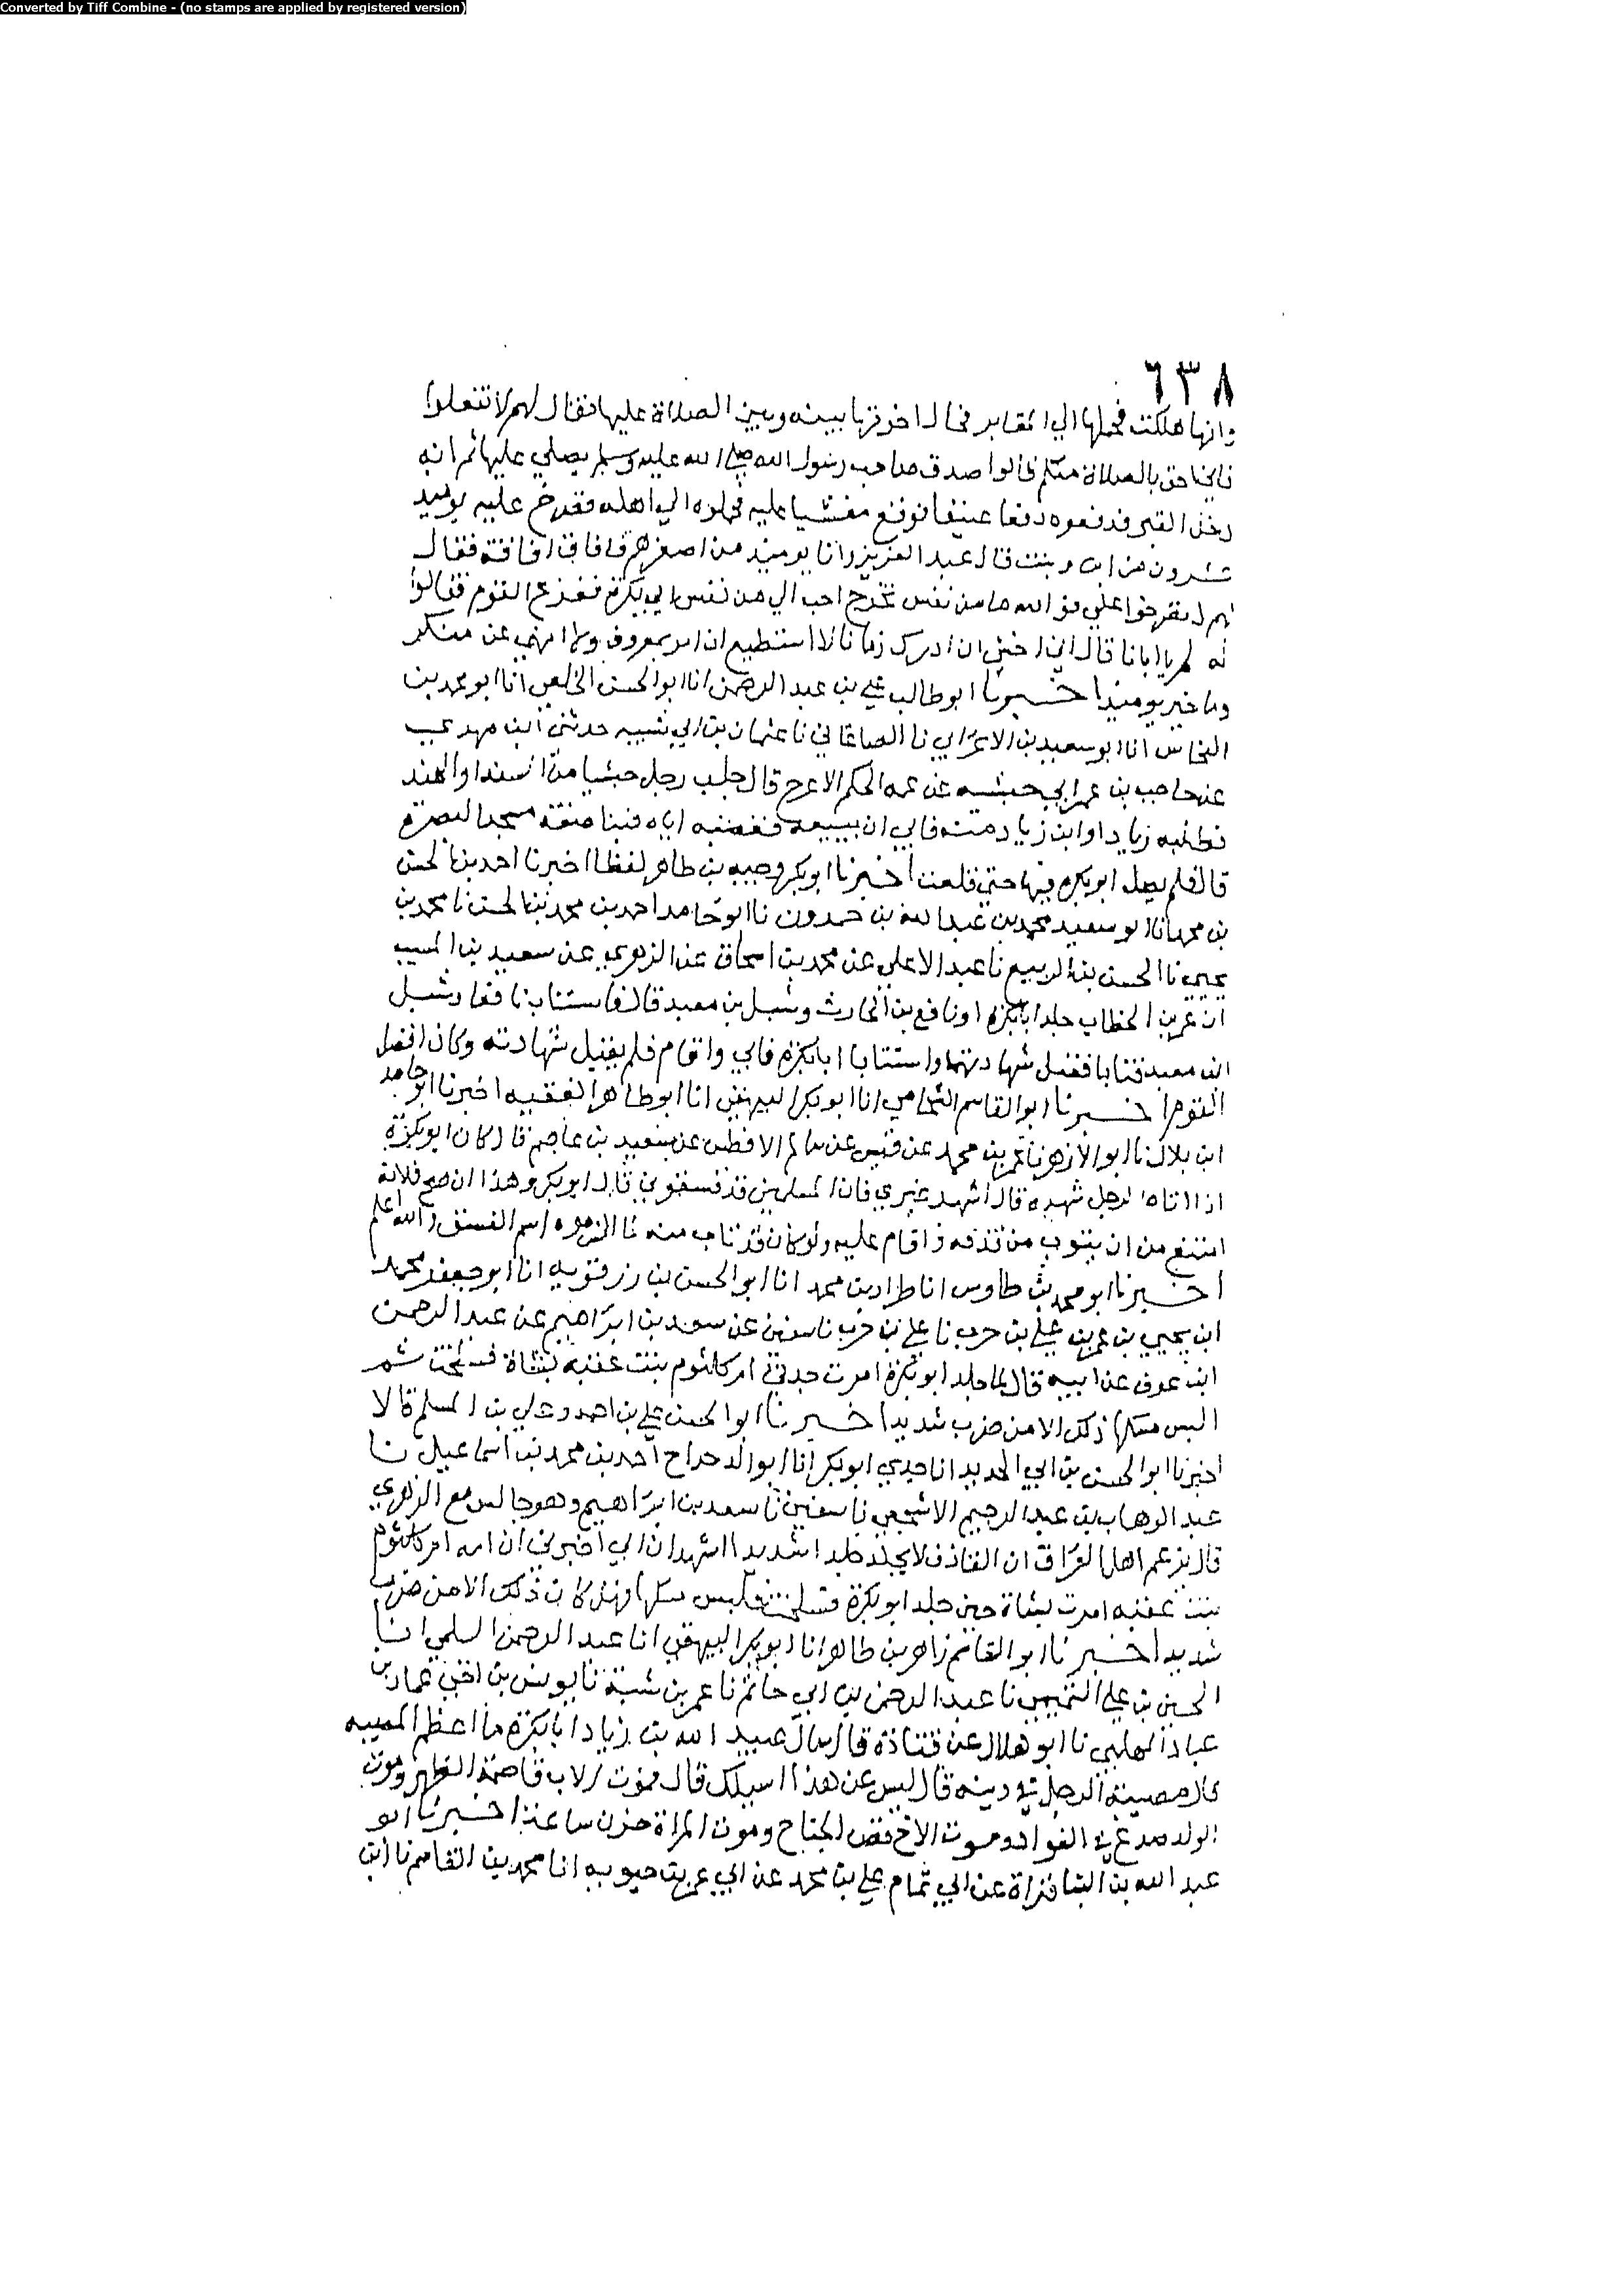 Converted by Tiff Combine - (no stamps are applied by registered version)
٦٣٨
وانها هلكت فحملها الي المقابر فحال اخوتها بينه وبين الصلاة عليها فقال لهم لا تفعلوا
فاني احق بالصلاة منكم قالوا صدق صاحب رسول الله صلى الله عليه وسلم يصلي عليها ثم انه
دخل القبر فدفعوه دفعا عنيفا فوقع مغشيا عليه فحملوه الي اهله فصرخ عليه يوميد
عشرون من ابن وبنت قال عبد العزيز وانا يوميد من اصغرهم فافاق افاقة فقال
لهم لا تصرخوا علي فو الله ما من نفس تخرج احب الي من نفس ابي بكرة ففزع القوم فقالوا
له لم يا ابانا قال اني اخشى ان ادرك زمانا لا استطيع ان امر بمعروف ولا انهي عن منكر
وما خير يوميذ اخبرنا ابو طالب علي بن عبد الرحمن انا ابو الحسن الخلعي انا ابو محمد بن
النحاس انا ابو سعيد بن الاعرابي نا الصاغاني نا عثمان بن ابي شيبه حدثني ابن مهدي
عن حاجب بن عمر ابي خشينه عن عمه الحكم الاعرج قال جلب رجل خشبا من السند او الهند
فطلبه زياد او ابن زياد منه فابي ان يبيعه فغصبه اياه فبنا صفة مسجد البصرة
قال فلم يصل ابو بكره فيها حتى قلعت اخبرنا ابو بكر وجيه بن طاهر لفظا اخبرنا احمد بن الحسن
بن محمد انا ابو سعيد محمد بن عبد الله بن حمدون نا ابو حامد احمد بن محمد بن الحسن نا محمد بن
يحيي نا الحسن بن الربيع نا عبد الاعلي عن محمد بن اسحاق عن الزهري عن سعيد بن المسيب
ان عمر بن الخطاب جلد ابا بكره ونافع بن الحارث وشبل بن معبد قال فاستتاب نافعا وشبل
ابن معبد فتابا فقبل شهادتهما واستتاب ابا بكره فابي واقام فلم يقبل شهادته وكان افضل
القوم اخبرنا ابو القاسم الشحامي انا ابو بكر البيهقي انا ابو طاهر الفقيه اخبرنا ابو حامد
ابن بلال نا ابو الازهر نا عمر بن محمد عن قيس عن سالم الافطس عن سعيد بن عاصم قال كان ابو بكرة
اذا اتاه الرجل شهده قال اشهد غيري فان المسلمين قد فسقوني قال ابو بكر وهذا ان صح فلانه
امتنع من ان يتوب من قذفه واقام عليه ولو كان قد تاب منه لما الزموه اسم الفسق والله اعلم
اخبرنا ابو محمد بن طاوس انا طراد بن محمد انا ابو الحسن بن رزقويه انا ابو جعفر محمد
ابن يحيي بن عمر بن علي بن حرب نا علي بن حرب نا سفين عن سعد بن ابراهيم عن عبد الرحمن
ابن عوف عن ابيه قال لما جلد ابو بكرة امرت جدتي ام كلثوم بنت عقبه بشاة فسلخت ثم
البس مسكها ذلك الا من ضرب شديد اخبرنا ابو الحسن علي بن احمد وعلي بن المسلم قالا
اخبرنا ابو الحسن بن ابي الحديد انا جدي ابو بكر انا ابو الدحداح احمد بن محمد بن اسماعيل نا
عبد الوهاب بن عبد الرحيم الاشجعي نا سفين نا سعد بن ابراهيم وهو جالس مع الزهري
قال يزعم اهل العراق ان القاذف لا يجلد جلدا شديدا اشهد ان ابي اخبرني ان امه ام كلثوم
بنت عقبه امرت بشاة حين جلد ابو بكرة فسلخت فلبس مسكها فهل كان ذلك الا من ضرب
شديد اخبرنا ابو القاسم زاهر بن طاهر انا ابو بكر البيهقي انا عبد الرحمن السلمي انا
الحسين بن علي التميمي نا عبد الرحمن بن ابي حاتم نا عمر بن شبة نا يونس بن اخي عمار بن
عباد المهلبي نا ابو هلال عن قتادة قال سال عبيد الله بن زياد ابا بكرة ما اعظم المصيبه
قال مصيبة الرجل في دينه قال ليس عن هذا اسيلك قال فموت الاب قاصمة الظهر وموت
الولد صدع في الفواد وموت الاخ قص الجناح وموت المراة حزن ساعة اخبرنا ابو
عبد الله بن البنا قراة عن ابي تمام علي بن محمد عن ابي عمر بن حيويه انا محمد بن القاسم نا ابن